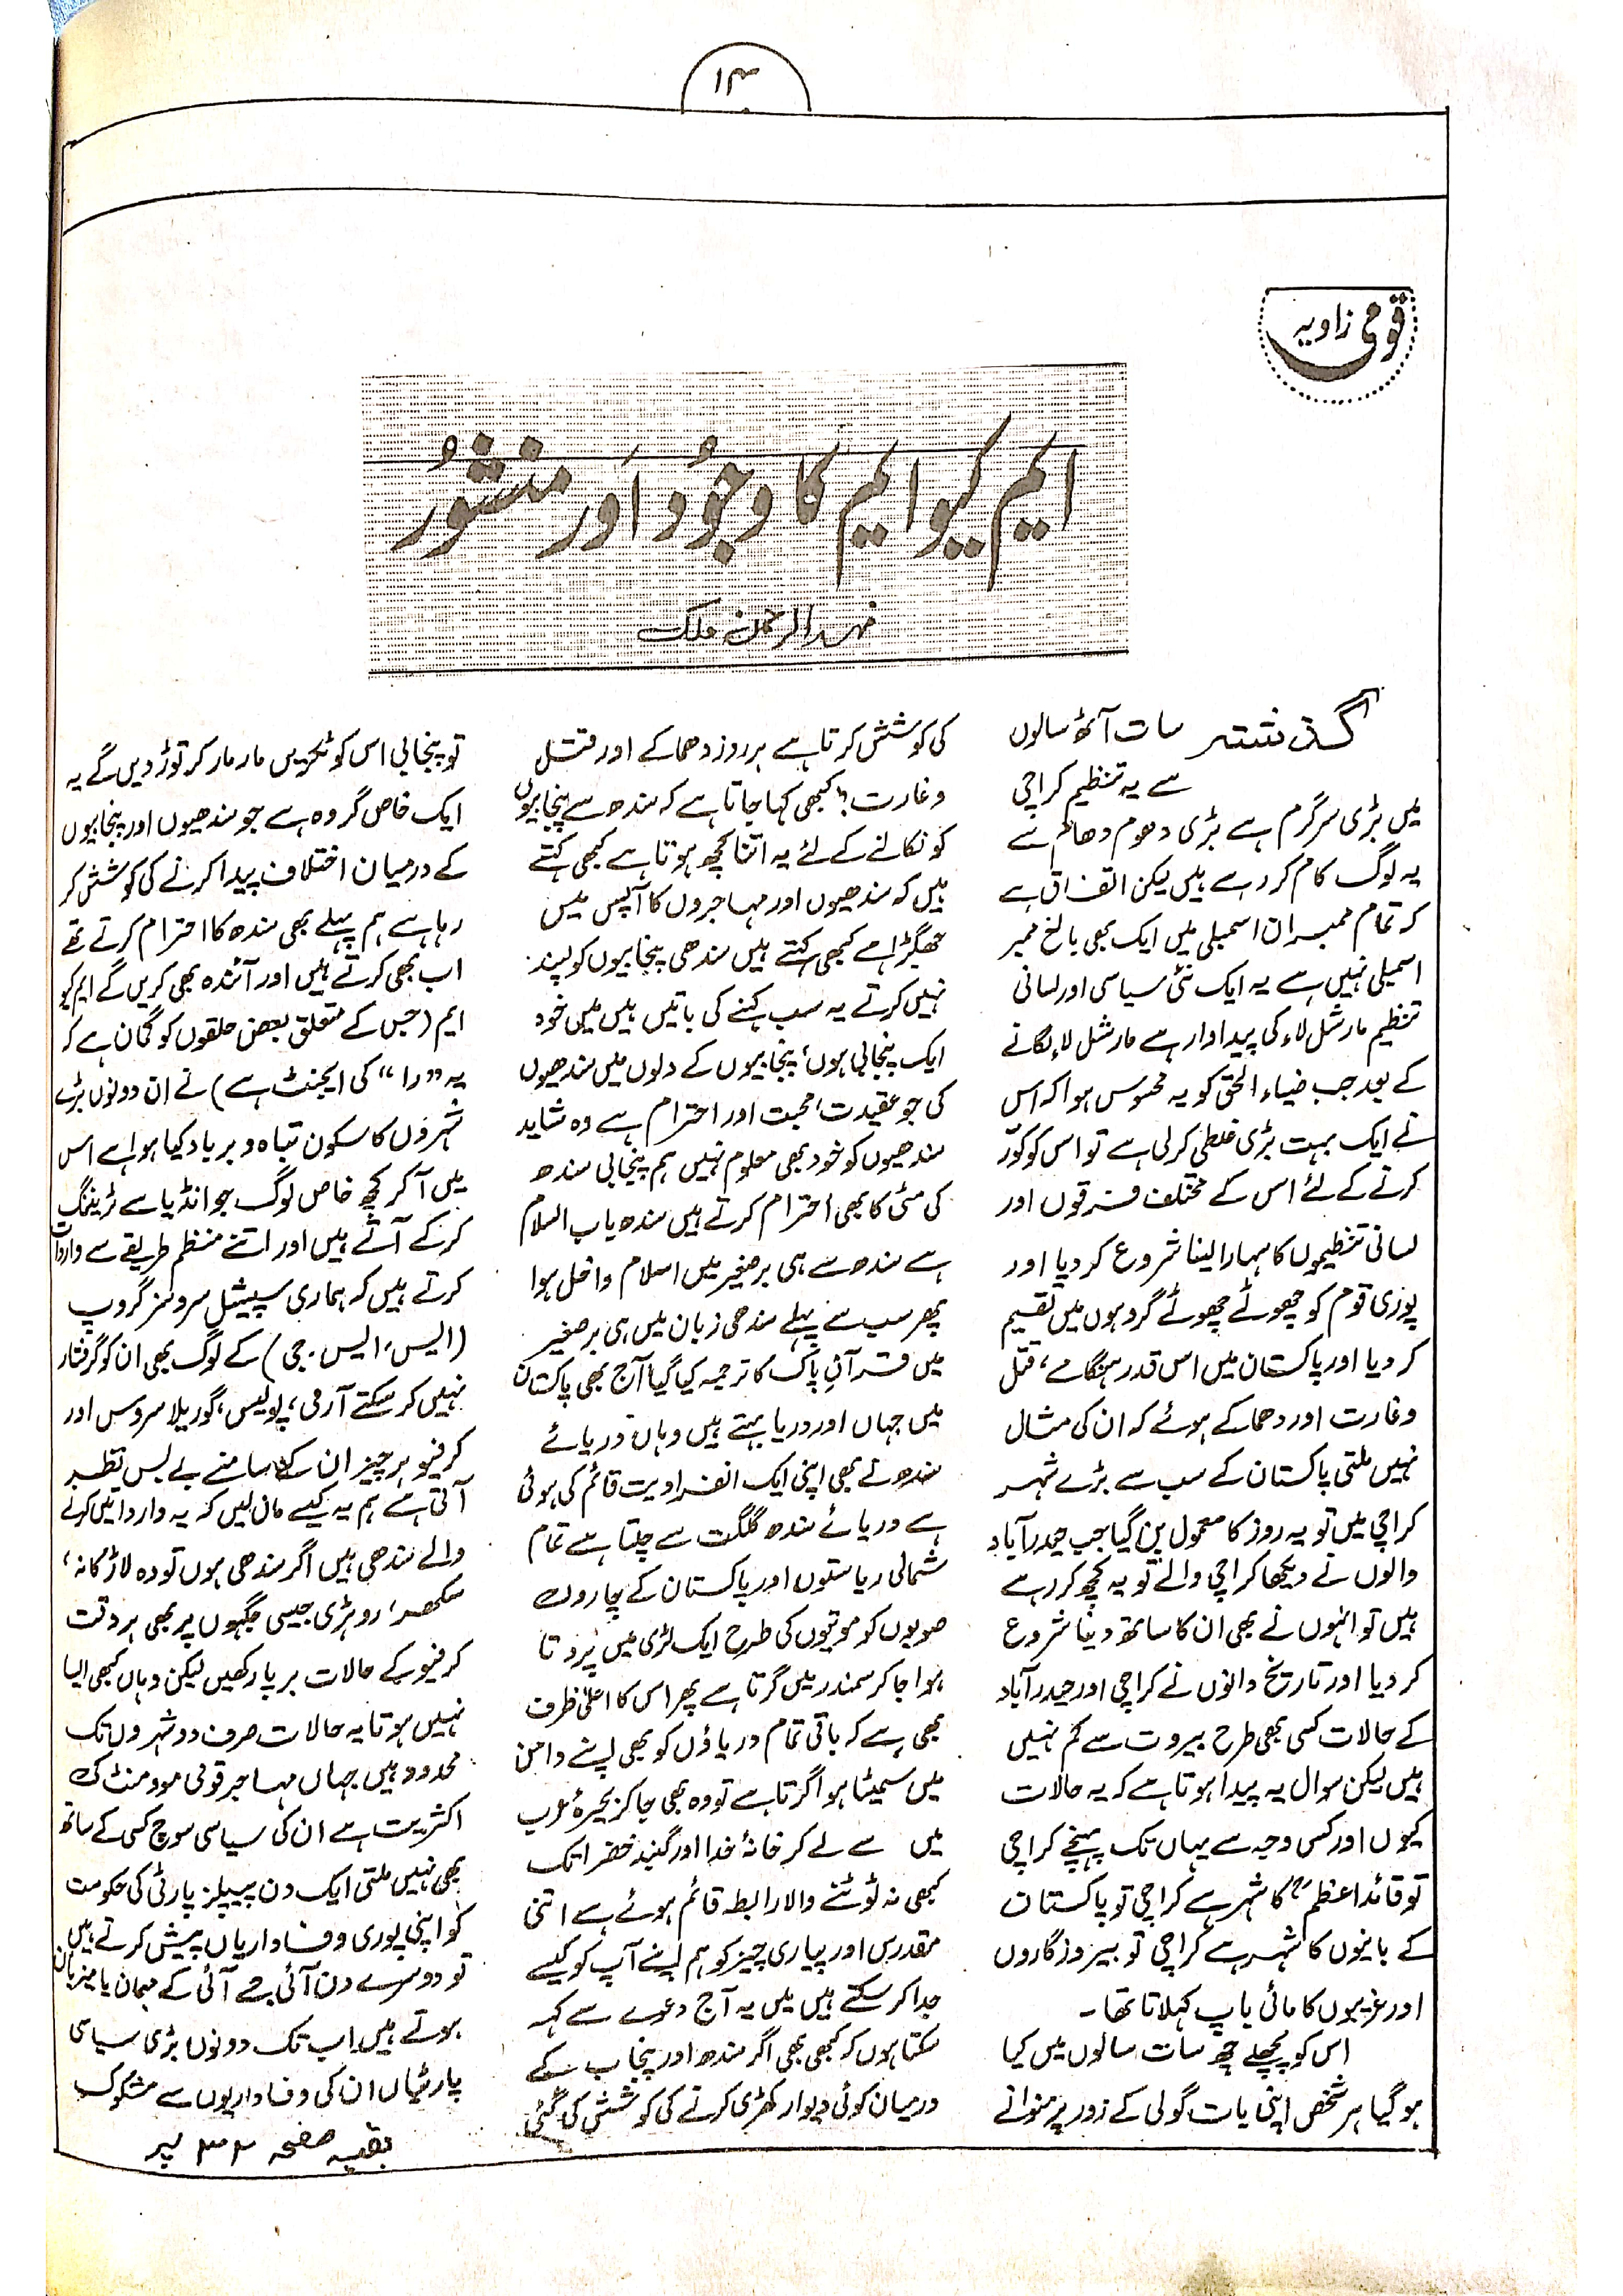 ۱۴
قومی زاویہ
ایم کیو ایم کا وجُود اَور منشُور
فہد الرحمٰن ملک
گذشتہ سات آٹھ سالوں
سے یہ تنظیم کراچی
میں بڑی سرگرم ہے بڑی دھوم دھام سے
یہ لوگ کام کر رہے ہیں لیکن اتفاق ہے
کہ تمام ممبران اسمبلی میں ایک بھی بالغ ممبر
اسمبلی نہیں ہے یہ ایک نئی سیاسی اور لسانی
تنظیم مارشل لاء کی پیداوار ہے مارشل لاء لگانے
کے بعد جب ضیاء الحق کو یہ محسوس ہوا کہ اس
نے ایک بہت بڑی غلطی کر لی ہے تو اس کو کوَر
کرنے کے لئے اس کے مختلف فرقوں اور
لسانی تنظیموں کا سہارا لینا شروع کر دیا اور
پوری قوم کو چھوٹے چھوٹے گروہوں میں تقسیم
کر دیا اور پاکستان میں اس قدر ہنگامے، قتل
و غارت اور دھماکے ہوئے کہ ان کی مثال
نہیں ملتی پاکستان کے سب سے بڑے شہر
کراچی میں تو یہ روز کا معمول بن گیا جب حیدرآباد
والوں نے دیکھا کراچی والے تو یہ کچھ کر رہے
ہیں تو انہوں نے بھی ان کا ساتھ دینا شروع
کر دیا اور تاریخ دانوں نے کراچی اور حیدرآباد
کے حالات کسی بھی طرح بیروت سے کم نہیں
ہیں لیکن سوال یہ پیدا ہوتا ہے کہ یہ حالات
کیوں اور کس وجہ سے یہاں تک پہنچے کراچی
تو قائداعظمؒ کا شہر ہے کراچی تو پاکستان
کے بانیوں کا شہر ہے کراچی تو بیروزگاروں
اور غریبوں کا مائی باپ کہلاتا تھا۔
اس کو پچھلے چھ سات سالوں میں کیا
ہو گیا ہر شخص اپنی بات گولی کے زور پر منوانے
کی کوشش کرتا ہے ہر روز دھماکے اور قتل
و غارت؟ کبھی کہا جاتا ہے کہ سندھ سے پنجابیوں
کو نکالنے کے لئے یہ اتنا کچھ ہوتا ہے کبھی کہتے
ہیں کہ سندھیوں اور مہاجروں کا آپس میں
جھگڑا ہے کبھی کہتے ہیں سندھی پنجابیوں کو پسند
نہیں کرتے یہ سب کہنے کی باتیں ہیں میں خود
ایک پنجابی ہوں، پنجابیوں کے دلوں میں سندھیوں
کی جو عقیدت، محبت اور احترام ہے وہ شاید
سندھیوں کو خود بھی معلوم نہیں ہم پنجابی سندھ
کی مٹی کا بھی احترام کرتے ہیں سندھ باب السلام
ہے سندھ سے ہی برصغیر میں اسلام داخل ہوا
پھر سب سے پہلے سندھی زبان میں ہی برصغیر
میں قرآنِ پاک کا ترجمہ کیا گیا آج بھی پاکستان
میں جہاں اور دریا بہتے ہیں وہاں دریائے
سندھ نے بھی اپنی ایک انفرادیت قائم کی ہوئی
ہے دریائے سندھ گلگت سے چلتا ہے تمام
شمالی ریاستوں اور پاکستان کے چاروں
صوبوں کو موتیوں کی طرح ایک لڑی میں پروتا
ہوا جا کر سمندر میں گرتا ہے پھر اس کا اعلیٰ ظرف
بھی ہے کہ باقی تمام دریاؤں کو بھی اپنے دامن
میں سمیٹا ہوا گرتا ہے تو وہ بھی جا کر بحیرۂ عرب
میں سے لے کر خانۂ خدا اور گنبد خضرا تک
کبھی نہ ٹوٹنے والا رابطہ قائم ہوئے ہے اتنی
مقدس اور پیاری چیز کو ہم اپنے آپ کو کیسے
جدا کر سکتے ہیں میں یہ آج دعوے سے کہہ
سکتا ہوں کہ کبھی بھی اگر سندھ اور پنجاب کے
درمیان کوئی دیوار کھڑی کرنے کی کوشش کی گئی
تو پنجابی اس کو ٹکریں مار مار کر توڑ دیں گے یہ
ایک خاص گروہ ہے جو سندھیوں اور پنجابیوں
کے درمیان اختلاف پیدا کرنے کی کوشش کر
رہا ہے ہم پہلے بھی سندھ کا احترام کرتے تھے
اب بھی کرتے ہیں اور آئندہ بھی کریں گے ایم کیو
ایم (جس کے متعلق بعض حلقوں کو گمان ہے کہ
یہ "را" کی ایجنٹ ہے) نے ان دونوں بڑے
شہروں کا سکون تباہ و برباد کیا ہوا ہے اس
میں آ کر کچھ خاص لوگ جو انڈیا سے ٹریننگ
کر کے آتے ہیں اور اتنے منظم طریقے سے واردات
کرتے ہیں کہ ہماری سپیشل سروسز گروپ
(ایس، ایس، جی) کے لوگ بھی ان کو گرفتار
نہیں کر سکتے آرمی، پولیس، گوریلا سروس اور
کرفیو ہر چیز ان کے سامنے بے بس نظر
آتی ہے ہم یہ کیسے مان لیں کہ یہ وارداتیں کرنے
والے سندھی ہیں اگر سندھی ہوں تو وہ لاڑکانہ،
سکھر، روہڑی جیسی جگہوں پر بھی ہر وقت
کرفیو کے حالات برپا رکھیں لیکن وہاں کبھی ایسا
نہیں ہوتا یہ حالات صرف دو شہروں تک
محدود ہیں جہاں مہاجر قومی موومنٹ کی
اکثریت ہے ان کی سیاسی سوچ کسی کے ساتھ
بھی نہیں ملتی ایک دن پیپلز پارٹی کی حکومت
کو اپنی پوری وفاداریاں پیش کرتے ہیں
تو دوسرے دن آئی جے آئی کے مہمان یا میزبان
ہوتے ہیں اب تک دونوں بڑی سیاسی
پارٹیاں ان کی وفاداریوں سے مشکوک
بقیہ صفحہ ۳۲ پر